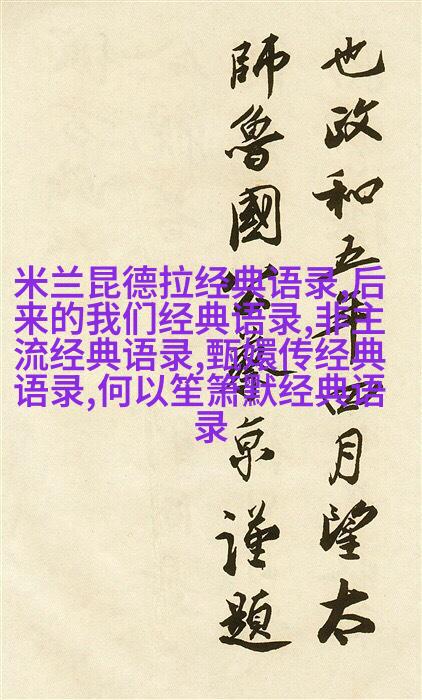 也政和五年四月望太
師魯國公蔡京謹題
米兰昆德拉经典语录,后
来的我们经典语录,非主
流经典语录,甄嬛传经典
语录,何以笙箫默经典语
录